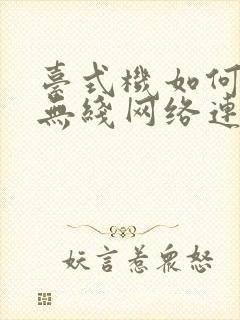 臺式機如何
無綫网络連
妖言惹眾怒